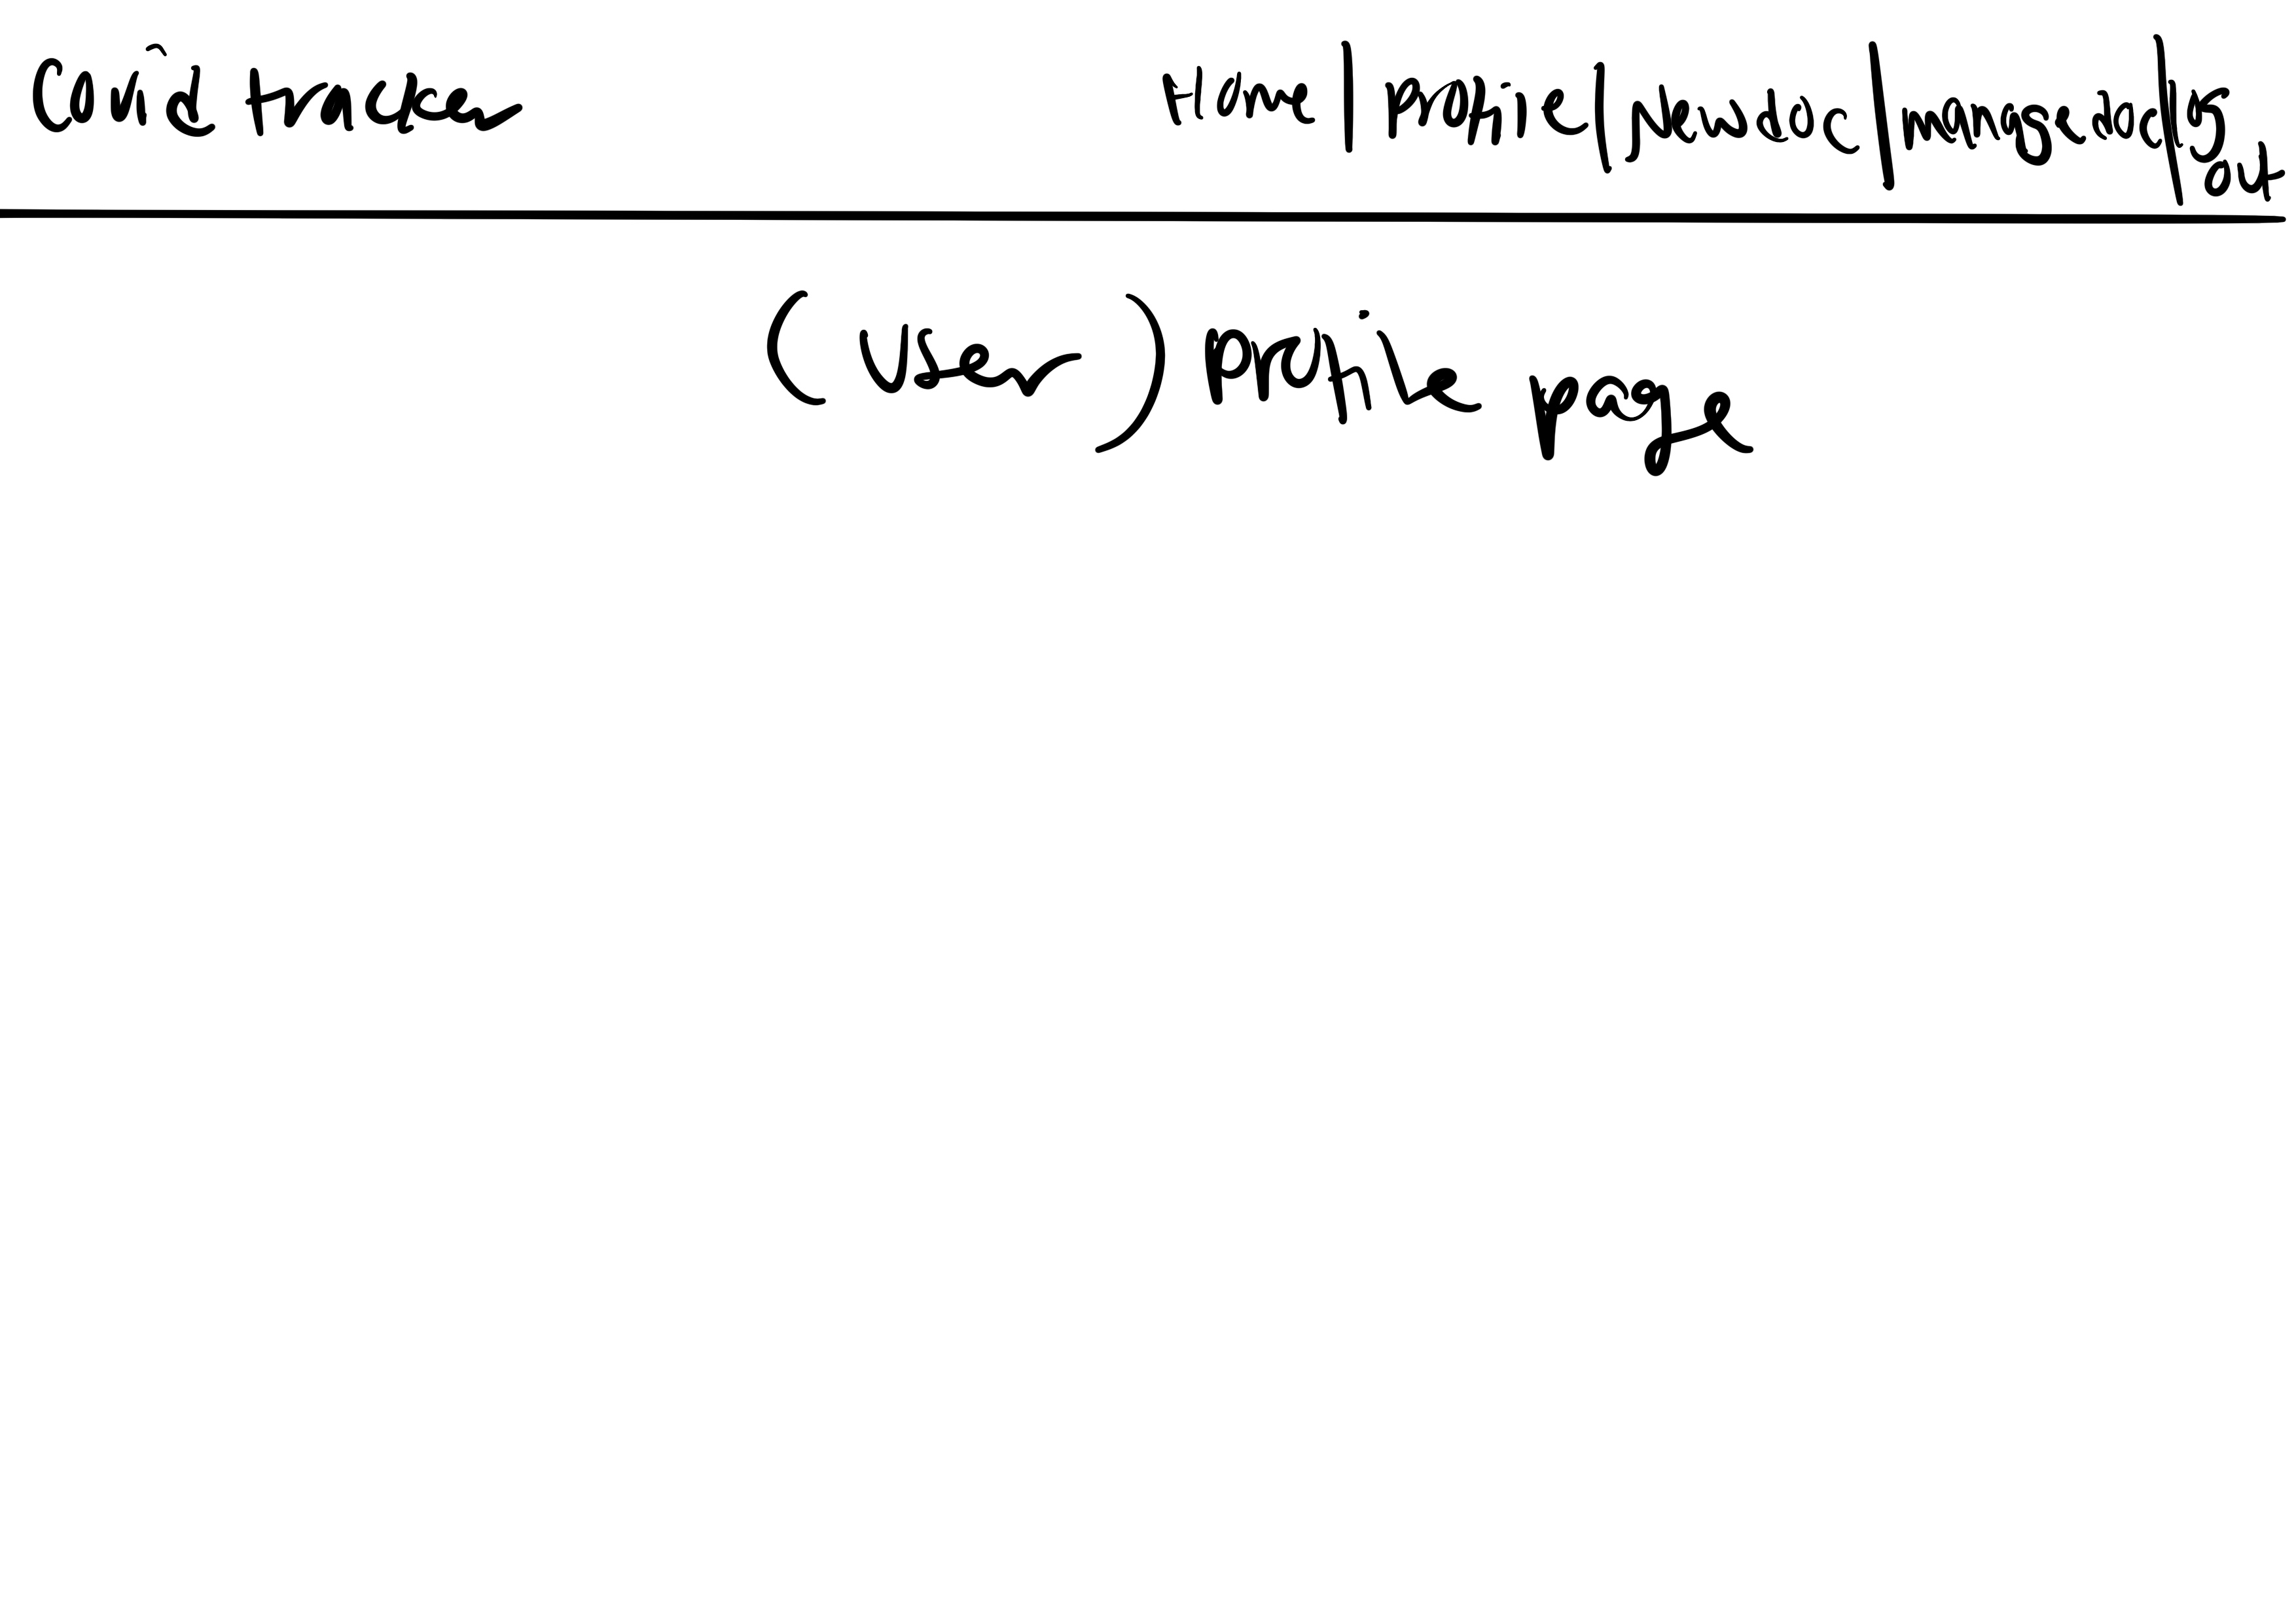 Covid tracker Home | profile | new doc | manage doc | log out
(User) profile page